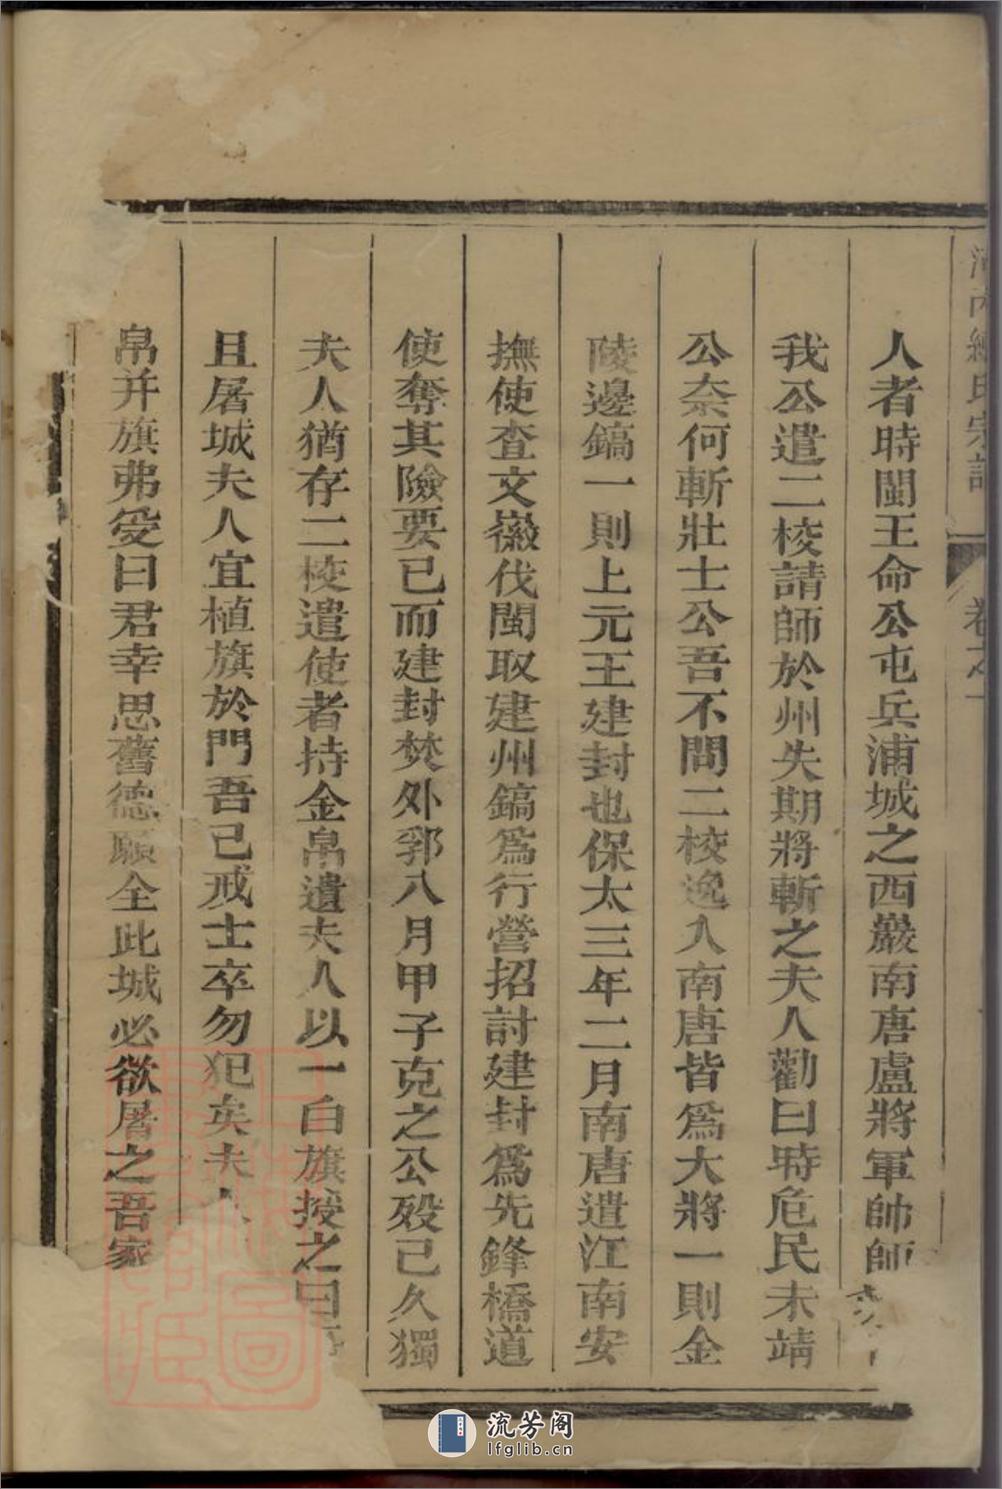 人者時閩王命公屯兵浦城之西巖南唐盧將軍帥師
我公遣二校請師於州失期將斬之夫人勸曰時危民未靖
公奈何斬壯士公吾不問二校逸入南唐皆爲大將一則金
陵邊鎬一則上元王建封也保太三年二月南唐遣江南安
撫使查文徽伐閩取建州鎬爲行營招討建封爲先鋒橋道
使奪其險要已而建封焚外郛八月甲子克之公歿已久獨
夫人猶存二校遣使者持金帛遺夫人以一白旗授之曰
且屠城夫人宜植旗於門吾已戒士卒勿犯矣夫人
帛并旗弗受曰君幸思舊德願全此城必欲屠之吾家
流芳阁
lfglib.cn